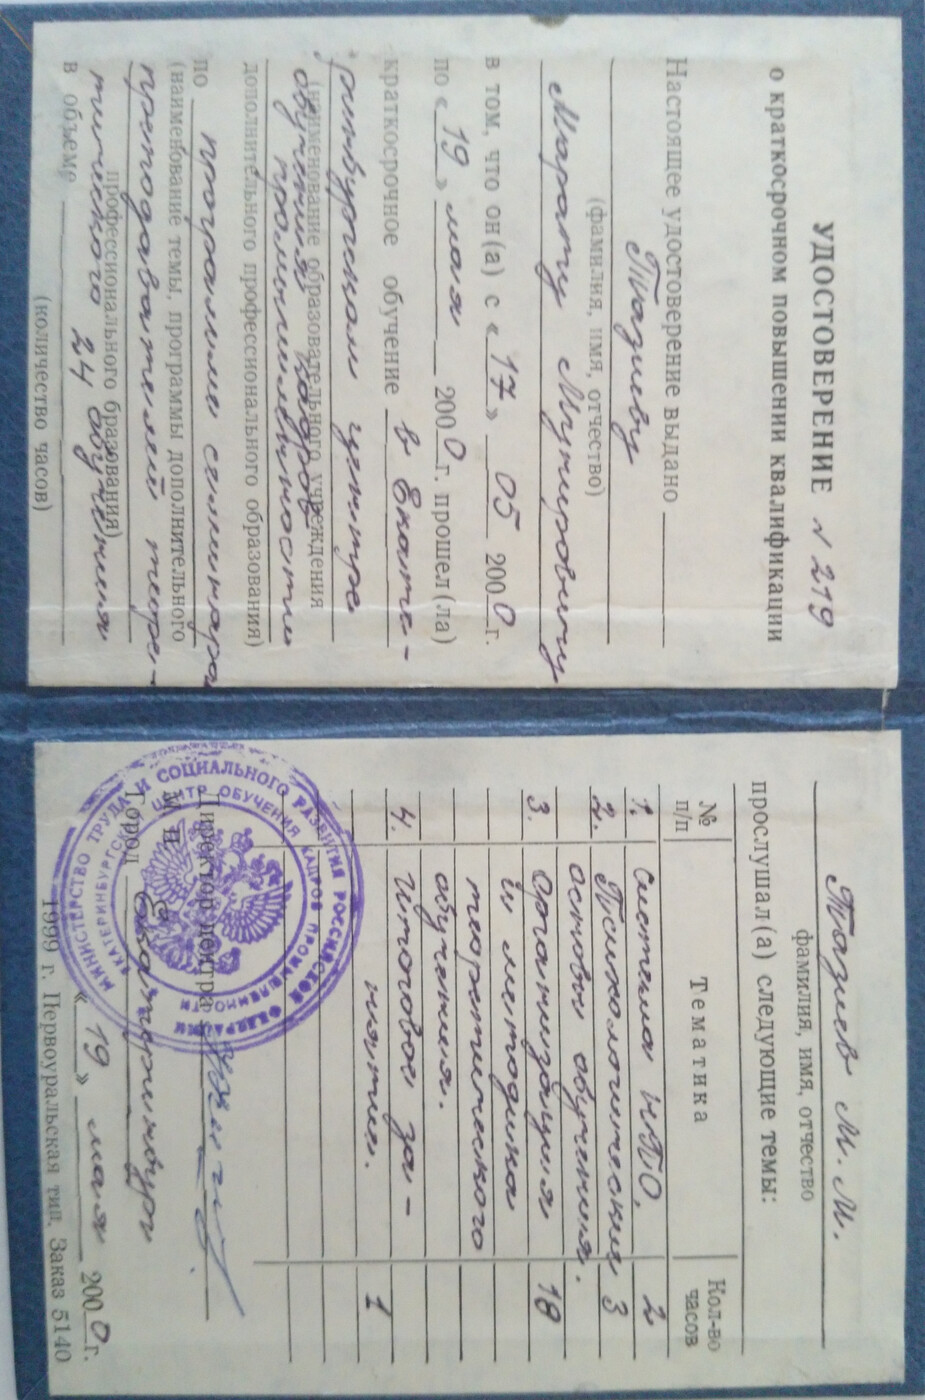 УДОСТОВЕРЕНИЕ N 219
о краткосрочном повышении квалификации
Настоящее удостоверение выдано
Тазиеву
(фамилия, имя, отчество)
Марату Мунировичу
в том, что он(а) с «17» 05 2000г.
по «19» мая 2000г. прошел(ла)
краткосрочное обучение в Екате-
ринбургском центре
(наименование образовательного учреждения
обучения кадров
промышленности
дополнительного профессионального образования)
по программе семинара
(наименование темы, программы дополнительного
преподавателей теоре-
профессионального бразования)
тического обучения
в объеме 24
(количество часов)
Тазиев М.М.
фамилия, имя, отчество
прослушал(а) следующие темы:
№ п/п Тематика Кол-во часов
1. Система НПО. 2
2. Психологические 3
основы обучения.
3. Организация 18
и методика
теоретического
обучения.
4. Итоговое за-
нятие. 1
Директор центра
М П
Город Екатеринбург
«19» мая 2000г.
1999 г. Первоуральская тип. Заказ 5140
МИНИСТЕРСТВО ТРУДА И СОЦИАЛЬНОГО РАЗВИТИЯ РОССИЙСКОЙ ФЕДЕРАЦИИ
ЕКАТЕРИНБУРГСКИЙ ЦЕНТР ОБУЧЕНИЯ КАДРОВ ПРОМЫШЛЕННОСТИ